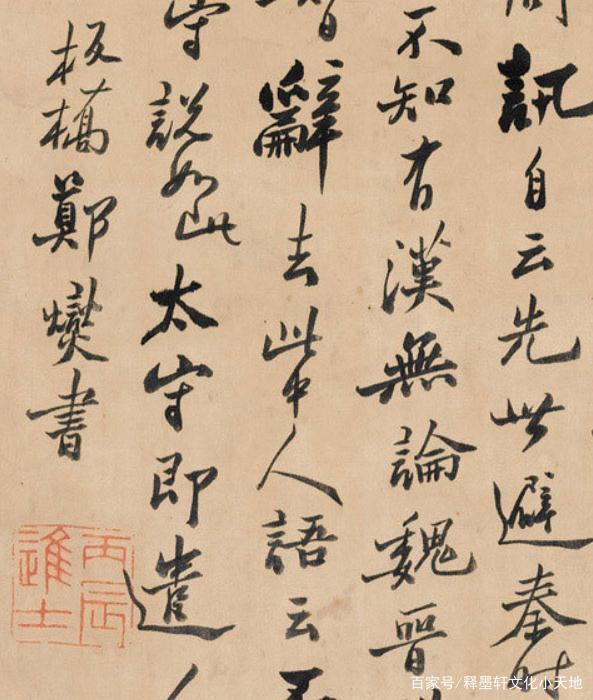 訊自云先世避秦時
不知有漢無論魏晉
辭去此中人語云不
守說如此太守即遣人
板橋鄭燮書
丙辰進士
百家号/释墨轩文化小天地